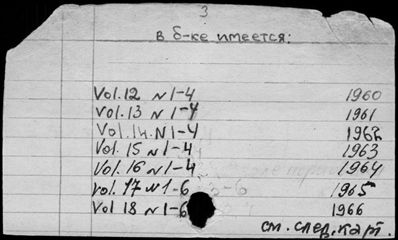 3
в б-ке имеется:
Vol. 12 N 1-4 1960
Vol. 13 N 1-4 1961
Vol. 14. N 1-4 1962
Vol. 15 N 1-4 1963
Vol. 16 N 1-4 1964
Vol. 17 N 1-6 1965
Vol 18 N 1-6 1966
см. след. кат.